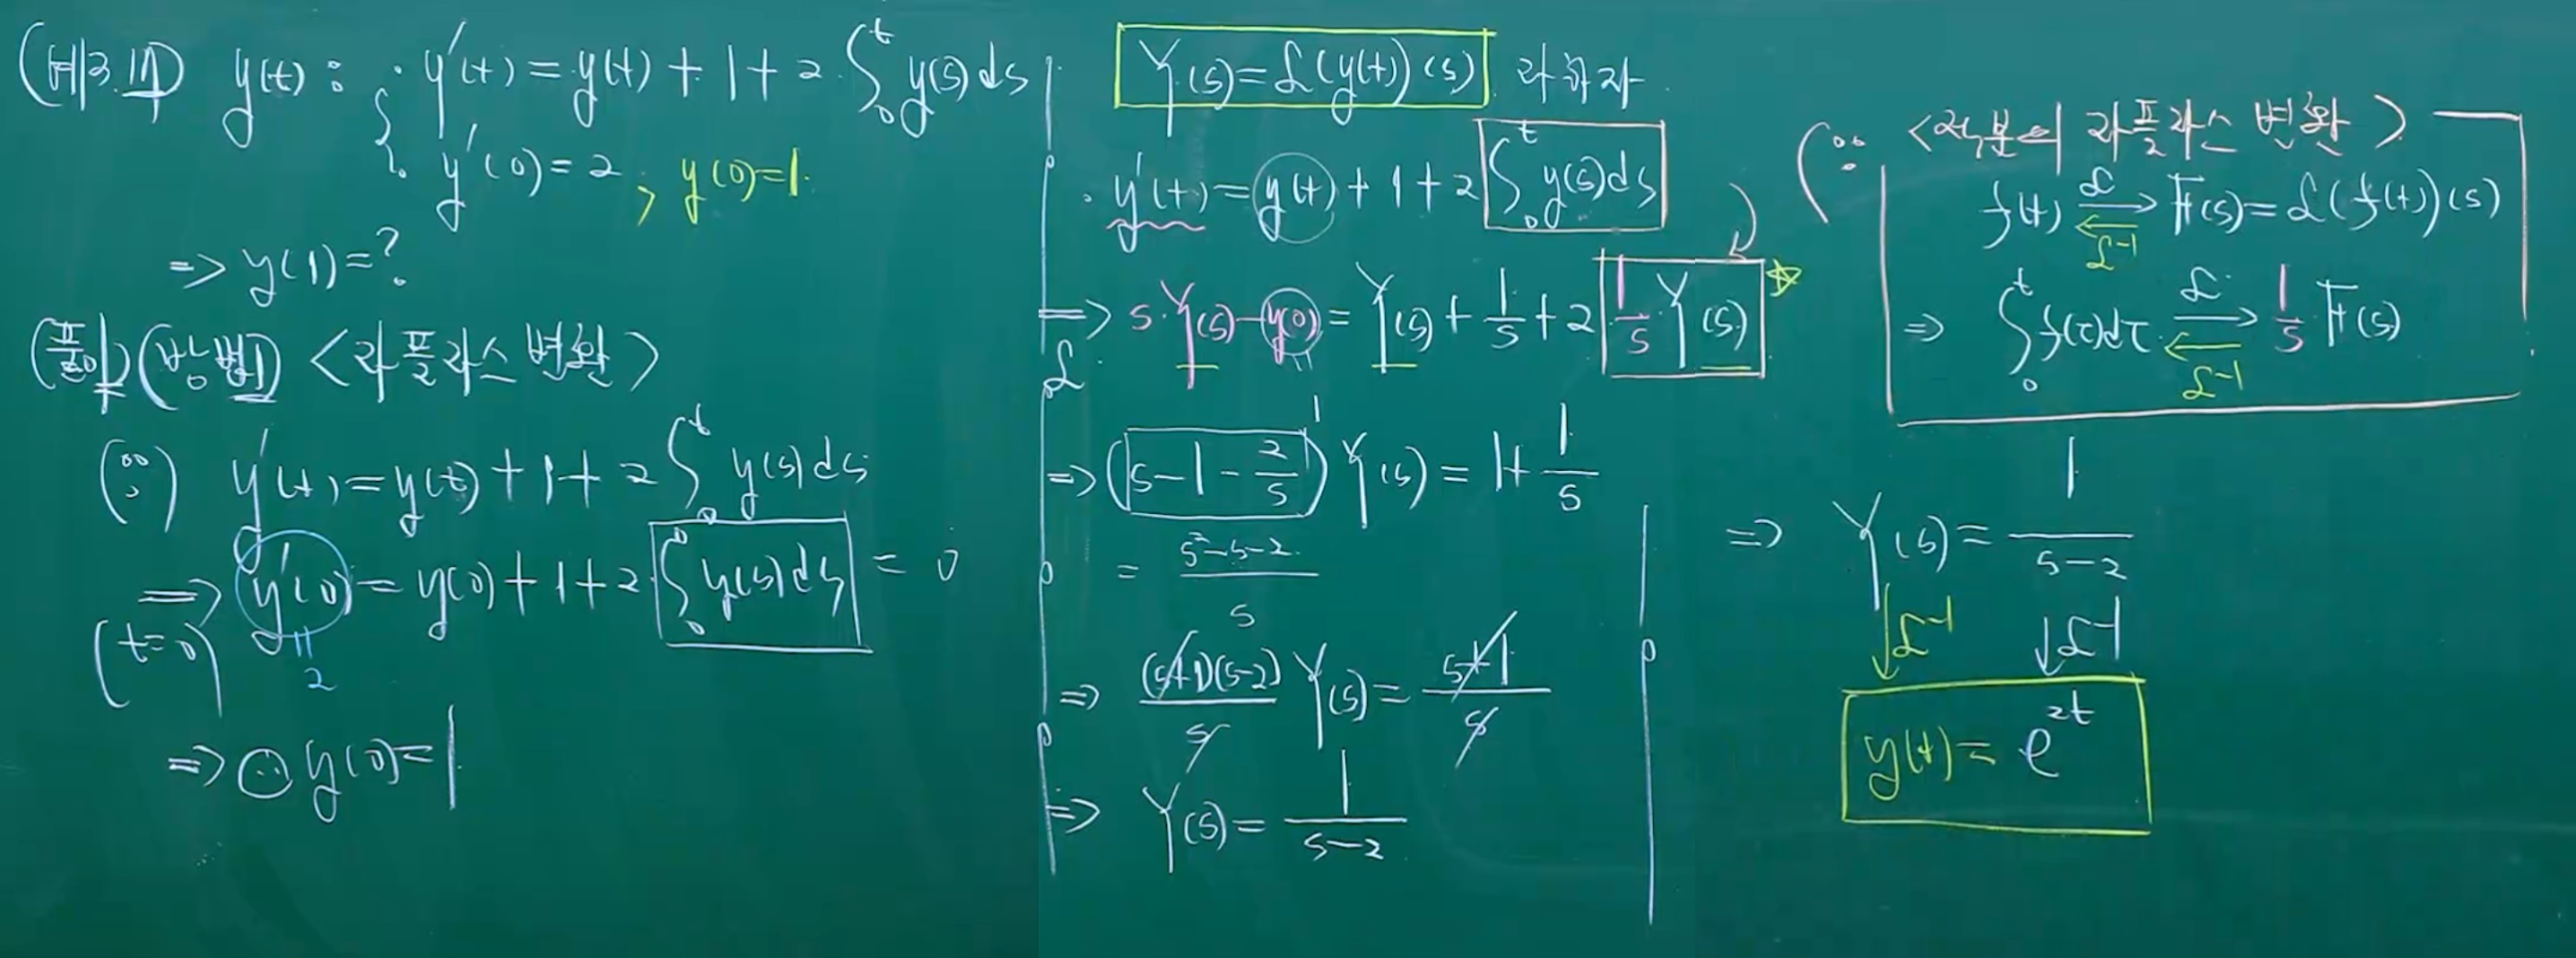 (예제3.17) y(t) : { y'(t) = y(t) + 1 + 2 ∫₀ᵗ y(s) ds
y'(0) = 2 , y(0)=1.
=> y(1) = ?
(풀이)(방법1) <라플라스 변환>
(∵) y'(t) = y(t) + 1 + 2 ∫₀ᵗ y(s) ds
=> y'(0) = y(0) + 1 + 2 ∫₀⁰ y(s) ds = 0
(t=0) 2
=> y(0) = 1
Y(s) = ℒ(y(t))(s) 라 하자.
y'(t) = y(t) + 1 + 2 ∫₀ᵗ y(s) ds
=> s·Y(s) - y(0) = Y(s) + 1/s + 2 1/s Y(s) ☆
ℒ 1
=> (s - 1 - 2/s) Y(s) = 1 + 1/s
= (s²-s-2)/s
=> (s+1)(s-2)/s Y(s) = (s+1)/s
=> Y(s) = 1/(s-2)
(∵ <적분의 라플라스 변환>
f(t) ⇄ F(s) = ℒ(f(t))(s)
ℒ ℒ⁻¹
=> ∫₀ᵗ f(τ)dτ ⇄ 1/s F(s)
ℒ ℒ⁻¹
=> Y(s) = 1/(s-2)
↓ℒ⁻¹ ↓ℒ⁻¹
y(t) = e²ᵗ